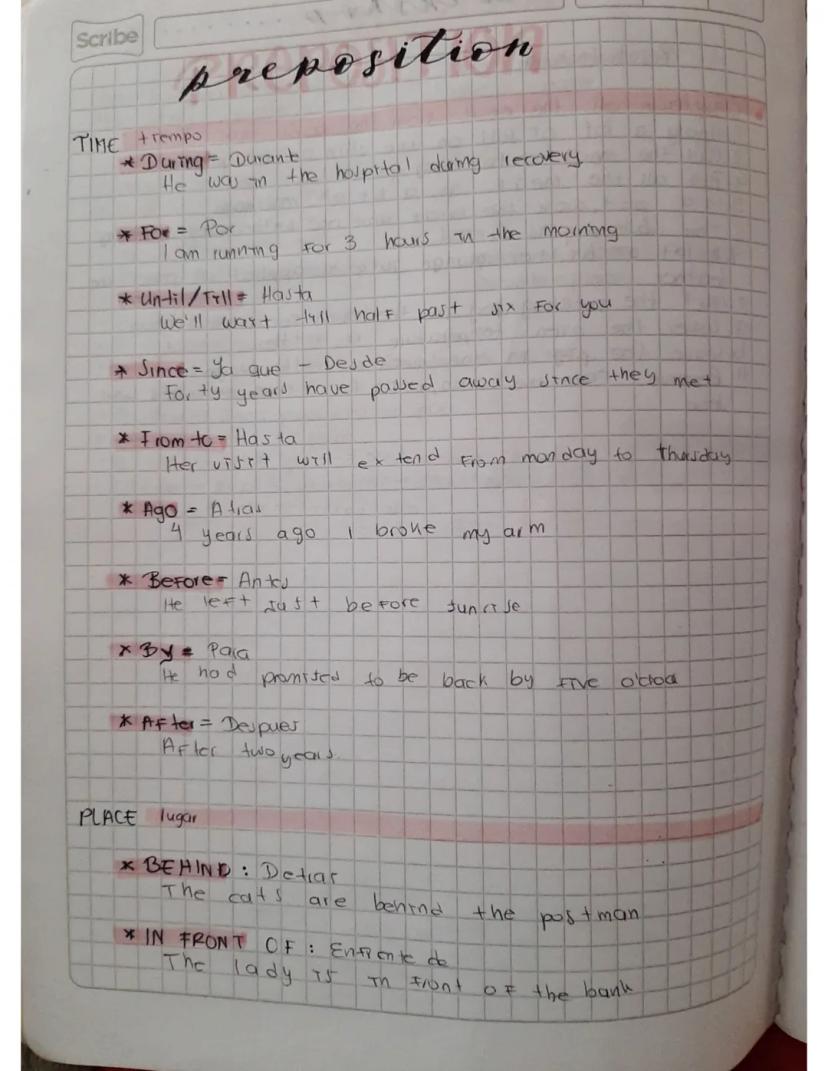 Scribe
preposition
TIME tiempo
* During = Durante
He was in the hospital during recovery
* For = Por
I am running for 3 hours in the morning
* Until/Till = Hasta
We'll wait till half past six for you
* Since = Ya que - Desde
Forty years have passed away since they met
* From to = Hasta
Her visit will extend from monday to thursday
* Ago = Atras
4 years ago I broke my arm
* Before = Antes
He left just before sunrise
* By = Para
He had promised to be back by five
* After = Despues
After two years
PLACE lugar
* BEHIND : Detras
The cats are behind the postman
* IN FRONT OF : Enfrente de
The lady is in front of the bank